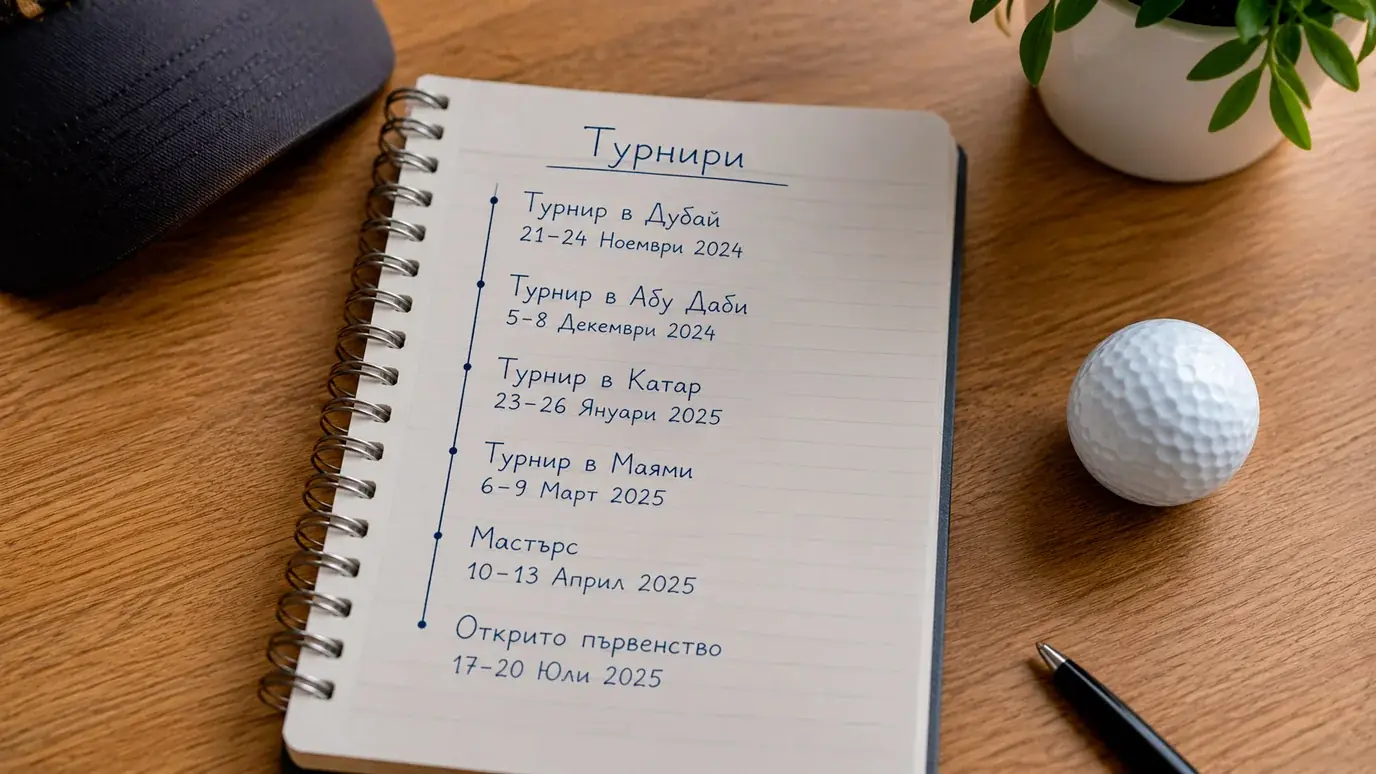 Турнири
Турнир в Дубай
21–24 Ноември 2024
Турнир в Абу Даби
5–8 Декември 2024
Турнир в Катар
23–26 Януари 2025
Турнир в Маями
6–9 Март 2025
Мастърс
10–13 Април 2025
Открито първенство
17–20 Юли 2025